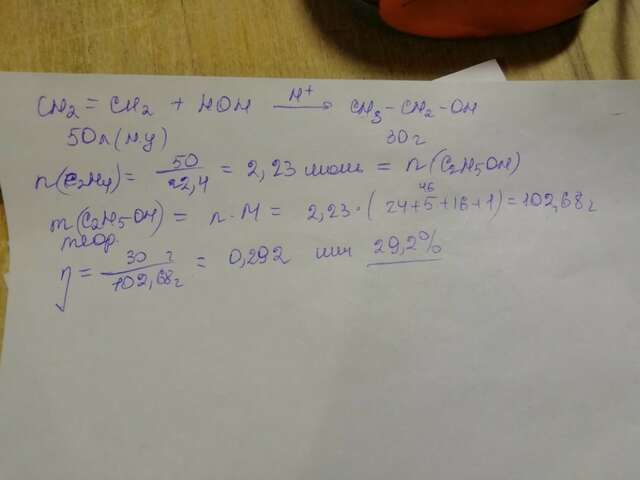 CH2 = CH2 + HOH H+ → CH3 - CH2 - OH
50л (н.у) 30 г
n(C2H4) = 50/22,4 = 2,23 моль = n(C2H5OH)
46
m(C2H5OH) = n·M = 2,23·(24+5+16+1) = 102,68 г
теор.
η = 30 г/102,68 г = 0,292 или 29,2%